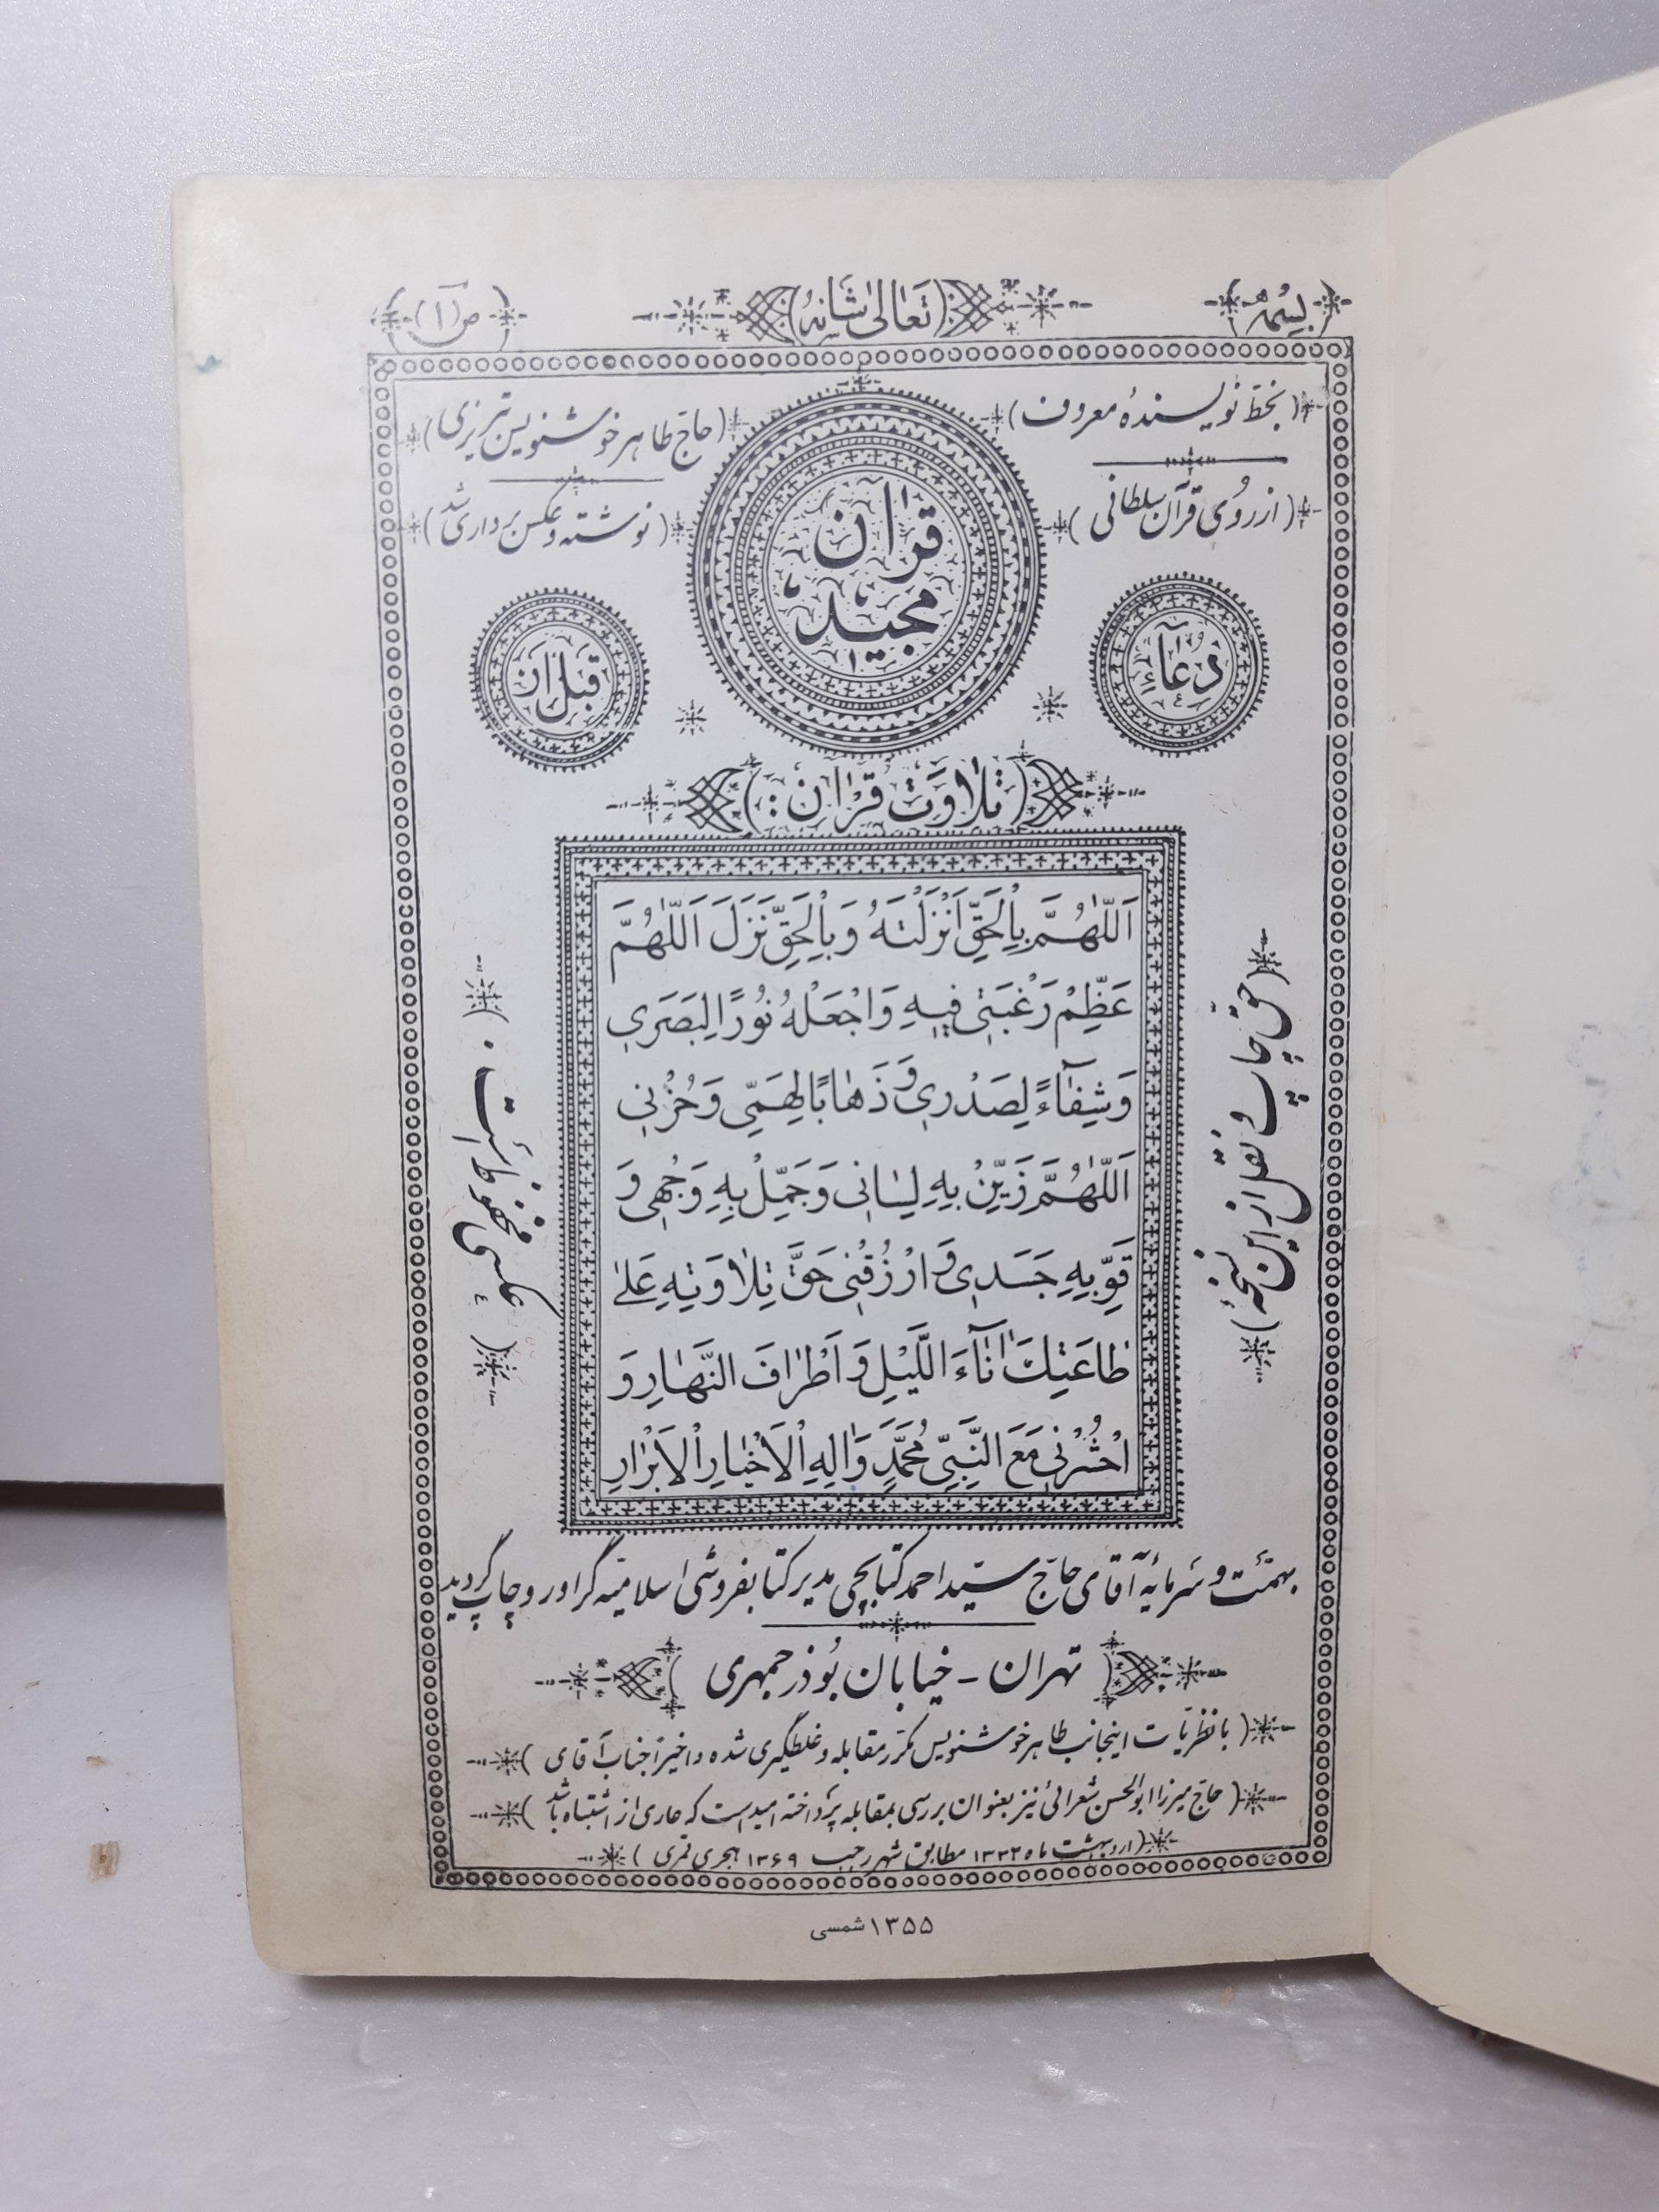 بسمه
تعالی شانه
ص (۱)
(بخط نویسندهٔ معروف)
(حاج طاهر خوشنویس تبریزی)
(از روی قرآن سلطانی)
(نوشته و عکس برداری شد)
قرآن
مجید
دعاء
قبل از
(تلاوت قرآن:)
اَللّٰهُمَّ بِالْحَقِّ اَنْزَلْتَهُ وَبِالْحَقِّ نَزَلَ اَللّٰهُمَّ
عَظِّمْ رَغْبَتی فیهِ وَاجْعَلْهُ نُورًا لِبَصَری
وَشِفٰآءً لِصَدْری وَذَهٰابًا لِهَمّی وَحُزْنی
اَللّٰهُمَّ زَیِّنْ بِهِ لِسٰانی وَجَمِّلْ بِهِ وَجْهی وَ
قَوِّ بِهِ جَسَدی وَارْزُقْنی حَقَّ تِلٰاوَتِهِ عَلیٰ
طٰاعَتِكَ اٰنٰآءَ اللَّیْلِ وَاَطْرٰافَ النَّهٰارِ وَ
احْشُرْنی مَعَ النَّبِیِّ مُحَمَّدٍ وَاٰلِهِ الْاَخْیٰارِ الْاَبْرٰارِ
(حق چاپ و نقل از این نسخهٔ)
(عکسی محفوظ است.)
بهمت و سرمایه آقای حاج سید احمد کتابچی مدیر کتابفروشی اسلامیه گراور و چاپ گردید
(تهران - خیابان بوذرجمهری)
(با نظریات اینجانب طاهر خوشنویس مکرر مقابله و غلطگیری شده و اخیراً جناب آقای)
(حاج میرزا ابوالحسن شعرائی نیز بعنوان بررسی بمقابله پرداخته امید است که عاری از اشتباه باشد)
(اردیبهشت ماه ۱۳۲۹ مطابق شهر رجب ۱۳۶۹ هجری قمری)
۱۳۵۵ شمسی